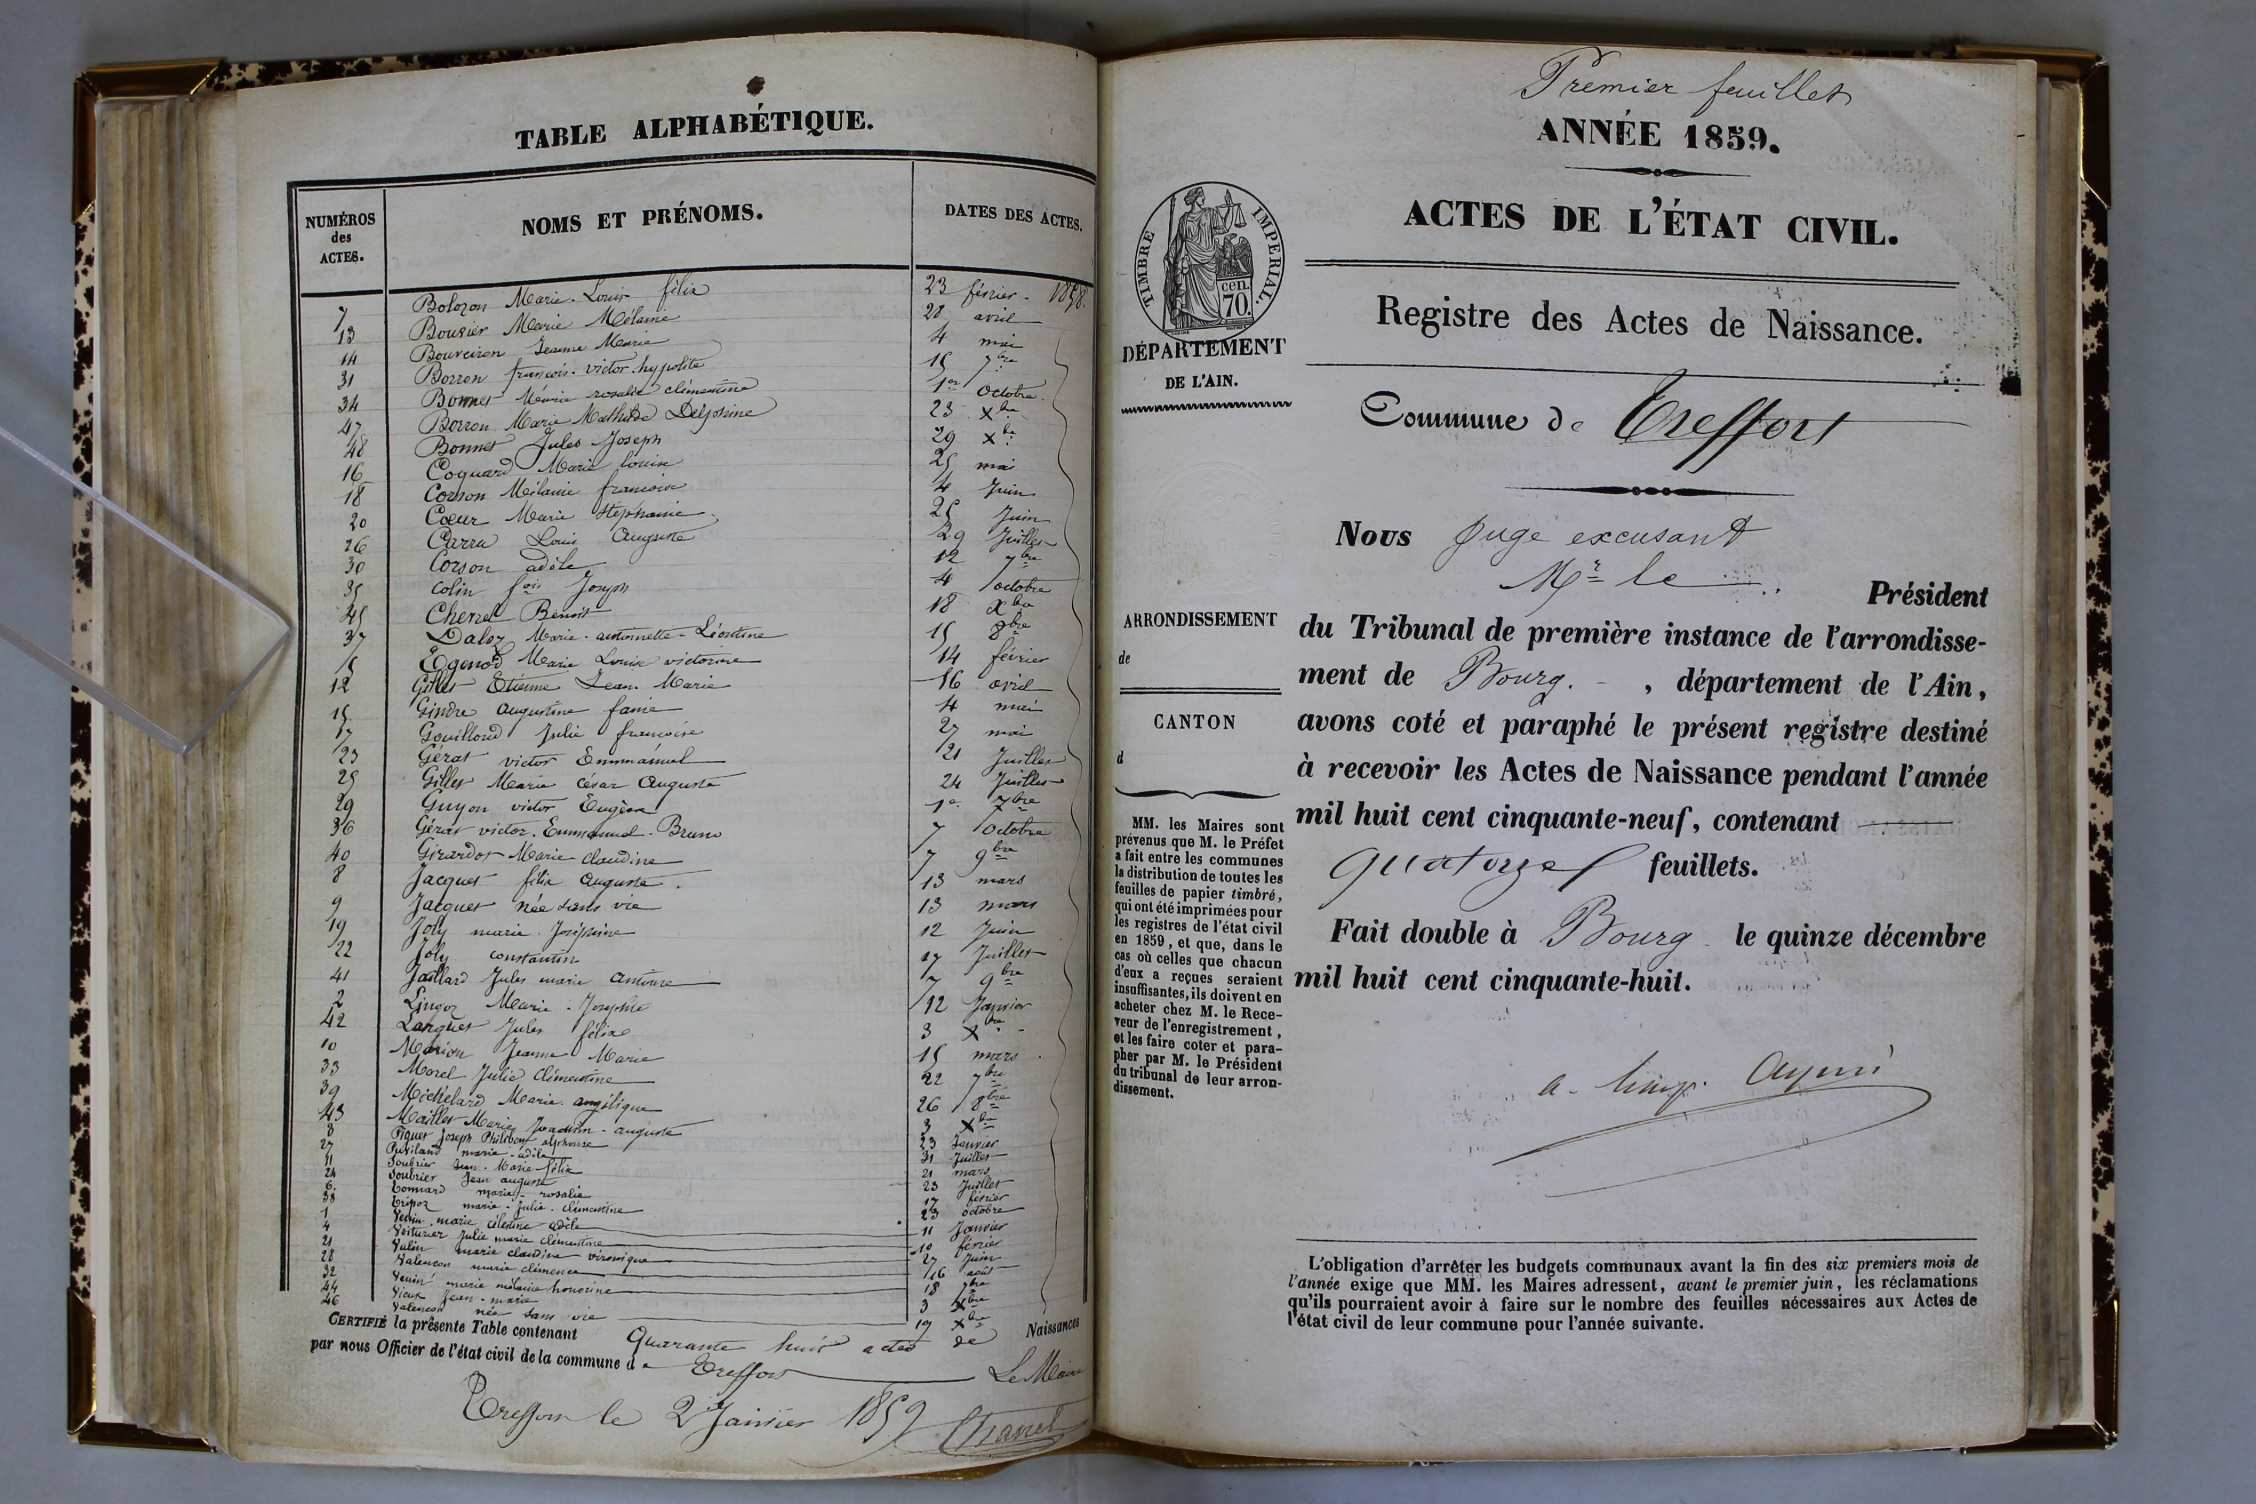 TABLE ALPHABÉTIQUE.
NUMÉROS des ACTES.
NOMS ET PRÉNOMS.
DATES DES ACTES.
7 Bolozon Marie Louis félix 23 février 1858.
13 Bouvier Marie Mélanie 28 avril
14 Bouveiron Jeanne Marie 4 mai
31 Borron françois victor hypolite 15 7bre
34 Bonnet Marie rosalie clémentine 1er octobre
47 Borron Marie Mathilde Delphine 23 Xbre
48 Bonnet Jules Joseph 29 Xbre
16 Coquard Marie louise 25 mai
18 Corson Mélanie françoise 4 Juin
20 Cœur Marie Stéphanie 25 Juin
26 Carru Louis Auguste 29 Juillet
30 Corson adèle 12 7bre
35 Colin fois Joseph 4 octobre
45 Chenel Benoit 18 Xbre
37 Daloz Marie antoinette Léontine 15 8bre
5 Egenod Marie Louise victorine 14 février
12 Gillet Etienne Jean Marie 16 avril
15 Gindre augustine fanie 4 mai
17 Gouilloud Julie françoise 27 mai
23 Gérat victor Emmanuel 21 Juillet
25 Gillet Marie César Auguste 24 Juillet
29 Guyon victor Eugène 1er 7bre
36 Gérat victor Emmanuel Bruno 7 octobre
40 Girardot Marie claudine 7 9bre
8 Jacquet félix auguste 13 mars
9 Jacquet née sans vie 13 mars
19 Joly marie Joséphine 12 Juin
22 Joly constantin 17 Juillet
41 Jaillard Jules marie antoine 7 9bre
2 Lingoz Marie Josephte 12 Janvier
42 Languet Jules félix 3 Xbre
10 Marion Jeanne Marie 15 mars
33 Morel Julie clémentine 22 7bre
39 Michelard Marie angélique 26 8bre
43 Maillet Marie Joachim auguste 3 Xbre
Piquet Joseph Philibert alphonse 23 Janvier
27 Puvilland marie adèle 31 Juillet
11 Soubrier Jean Marie félix 21 mars
24 Soubrier Jean auguste 23 Juillet
6 Tonnard marie rosalie 17 février
38 marie Julie clémentine 23 octobre
1 marie célestine adèle 11 Janvier
4 Voiturier Julie marie clémentine 10 février
21 Vulin marie claudine véronique 27 Juin
28 Valençon marie clémence 16 août
32 marie mélanie honorine 18 7bre
44 Vieux Jean marie 3 Xbre
46 Valençon née sans vie 19 Xbre
CERTIFIÉ la présente Table contenant Quarante huit actes de Naissances
par nous Officier de l'état civil de la commune de Treffort
Le Maire
Treffort le 2 Janvier 1859
Premier feuillet
ANNÉE 1859.
ACTES DE L'ÉTAT CIVIL.
TIMBRE IMPERIAL.
cen. 70.
DÉPARTEMENT
DE L'AIN.
Registre des Actes de Naissance.
Commune de Treffort
Nous Juge excusant
Mr le Président
du Tribunal de première instance de l'arrondisse-
ment de Bourg. , département de l'Ain,
avons coté et paraphé le présent registre destiné
à recevoir les Actes de Naissance pendant l'année
mil huit cent cinquante-neuf, contenant
quatorze feuillets.
Fait double à Bourg le quinze décembre
mil huit cent cinquante-huit.
ARRONDISSEMENT
de
CANTON
d
MM. les Maires sont
prévenus que M. le Préfet
a fait entre les communes
la distribution de toutes les
feuilles de papier timbré,
qui ont été imprimées pour
les registres de l'état civil
en 1859, et que, dans le
cas où celles que chacun
d'eux a reçues seraient
insuffisantes, ils doivent en
acheter chez M. le Rece-
veur de l'enregistrement,
et les faire coter et para-
pher par M. le Président
du tribunal de leur arron-
dissement.
L'obligation d'arrêter les budgets communaux avant la fin des six premiers mois de
l'année exige que MM. les Maires adressent, avant le premier juin, les réclamations
qu'ils pourraient avoir à faire sur le nombre des feuilles nécessaires aux Actes de
l'état civil de leur commune pour l'année suivante.